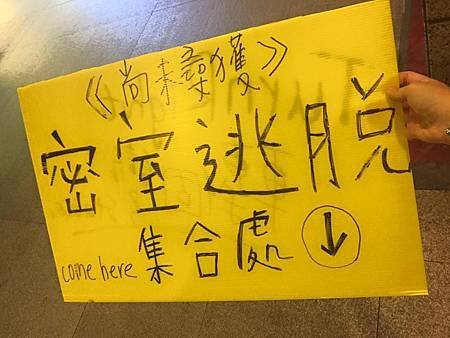 《尚未尋獲》
密室逃脫
come here 集合處 ↓